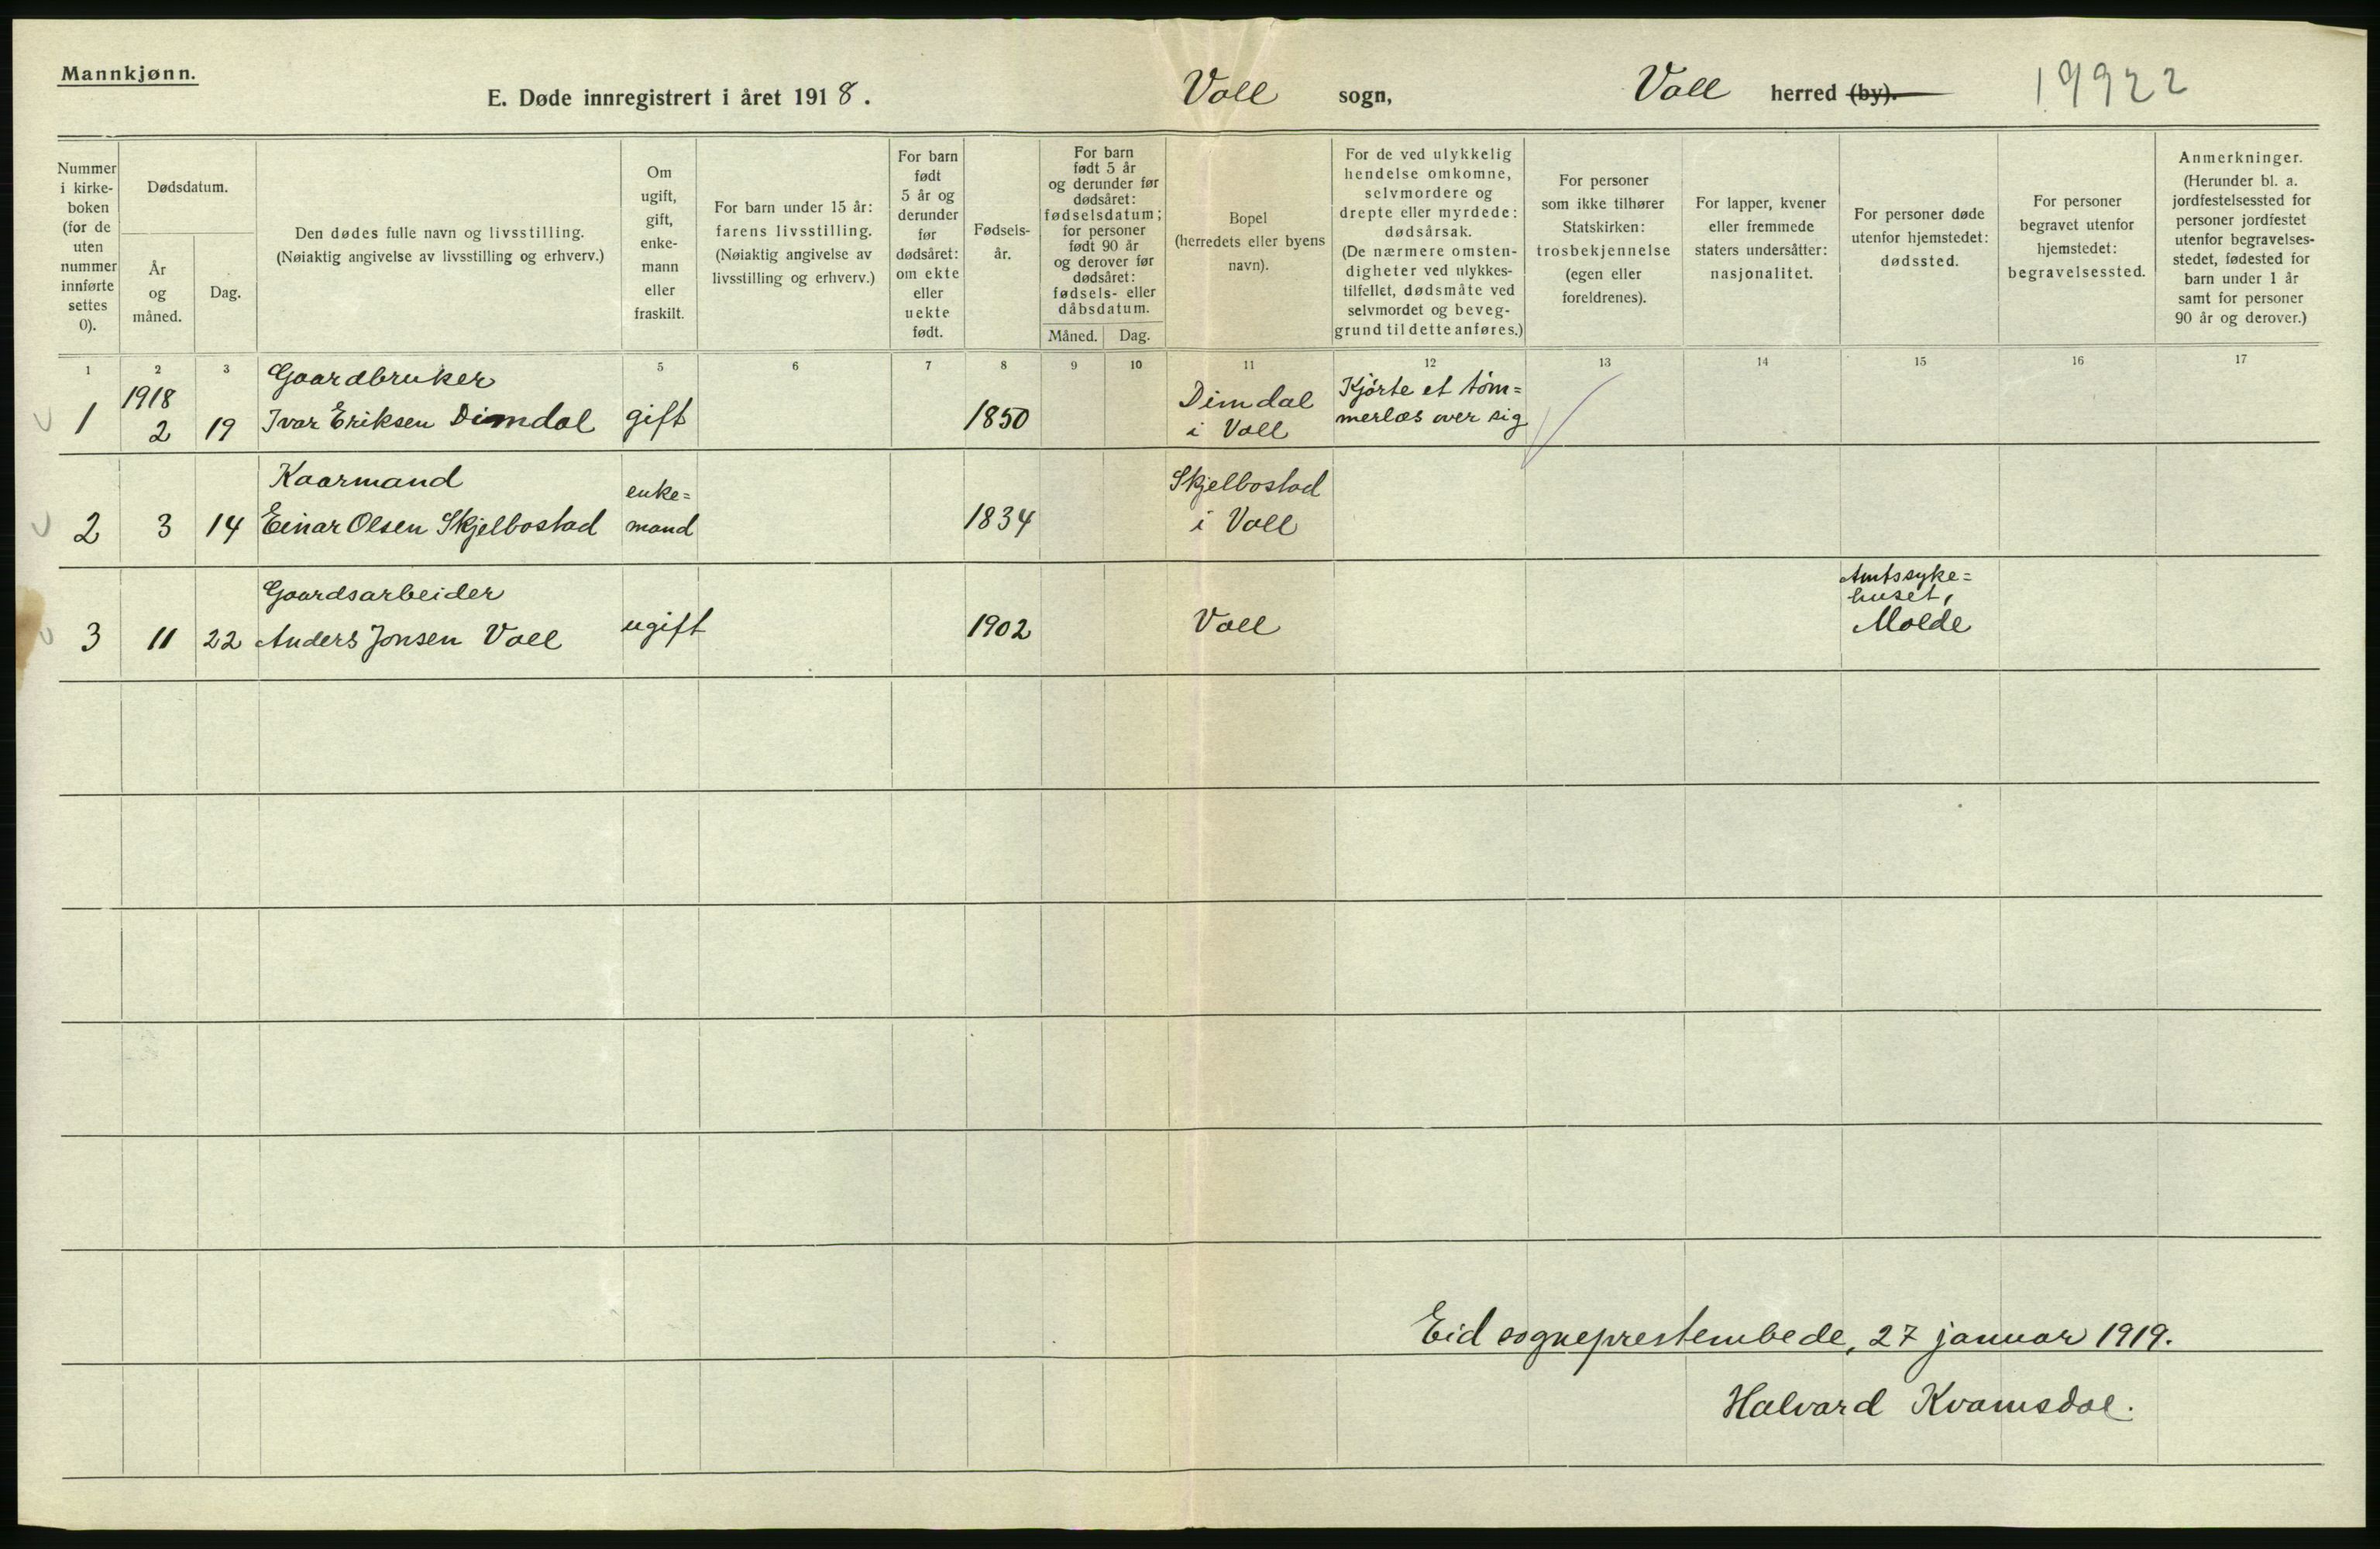 Mannkjønn.
E. Døde innregistrert i året 1918. Voll sogn, Voll herred (by). 19922
Nummer i kirke-boken (for de uten nummer innførte settes 0).
Dødsdatum.
År og måned.
Dag.
Den dødes fulle navn og livsstilling.
(Nøiaktig angivelse av livsstilling og erhverv.)
Om ugift, gift, enke-mann eller fraskilt.
For barn under 15 år: farens livsstilling.
(Nøiaktig angivelse av livsstilling og erhverv.)
For barn født 5 år og derunder før dødsåret: om ekte eller uekte født.
Fødsels-år.
For barn født 5 år og derunder før dødsåret: fødselsdatum; for personer født 90 år og derover før dødsåret: fødsels- eller dåbsdatum.
Måned. Dag.
Bopel (herredets eller byens navn).
For de ved ulykkelig hendelse omkomne, selvmordere og drepte eller myrdede: dødsårsak.
(De nærmere omsten-digheter ved ulykkes-tilfellet, dødsmåte ved selvmordet og beveg-grund til dette anføres.)
For personer som ikke tilhører Statskirken: trosbekjennelse (egen eller foreldrenes).
For lapper, kvener eller fremmede staters undersåtter: nasjonalitet.
For personer døde utenfor hjemstedet: dødssted.
For personer begravet utenfor hjemstedet: begravelsessted.
Anmerkninger.
(Herunder bl. a. jordfestelsessted for personer jordfestet utenfor begravelses-stedet, fødested for barn under 1 år samt for personer 90 år og derover.)
1 2 3 5 6 7 8 9 10 11 12 13 14 15 16 17
1918 Gaardbruker Dimdal Kjørte et tøm=
1 2 19 Ivar Eriksen Dimdal gift 1850 i Voll merlæs over sig
Kaarmand enke= Skjelbostad
2 3 14 Einar Olsen Skjelbostad mand 1834 i Voll
Gaardsarbeider Amtssyke=
huset,
3 11 22 Anders Jonsen Voll ugift 1902 Voll Molde
Eid sogneprestembede, 27 januar 1919.
Halvard Kvamsdal.